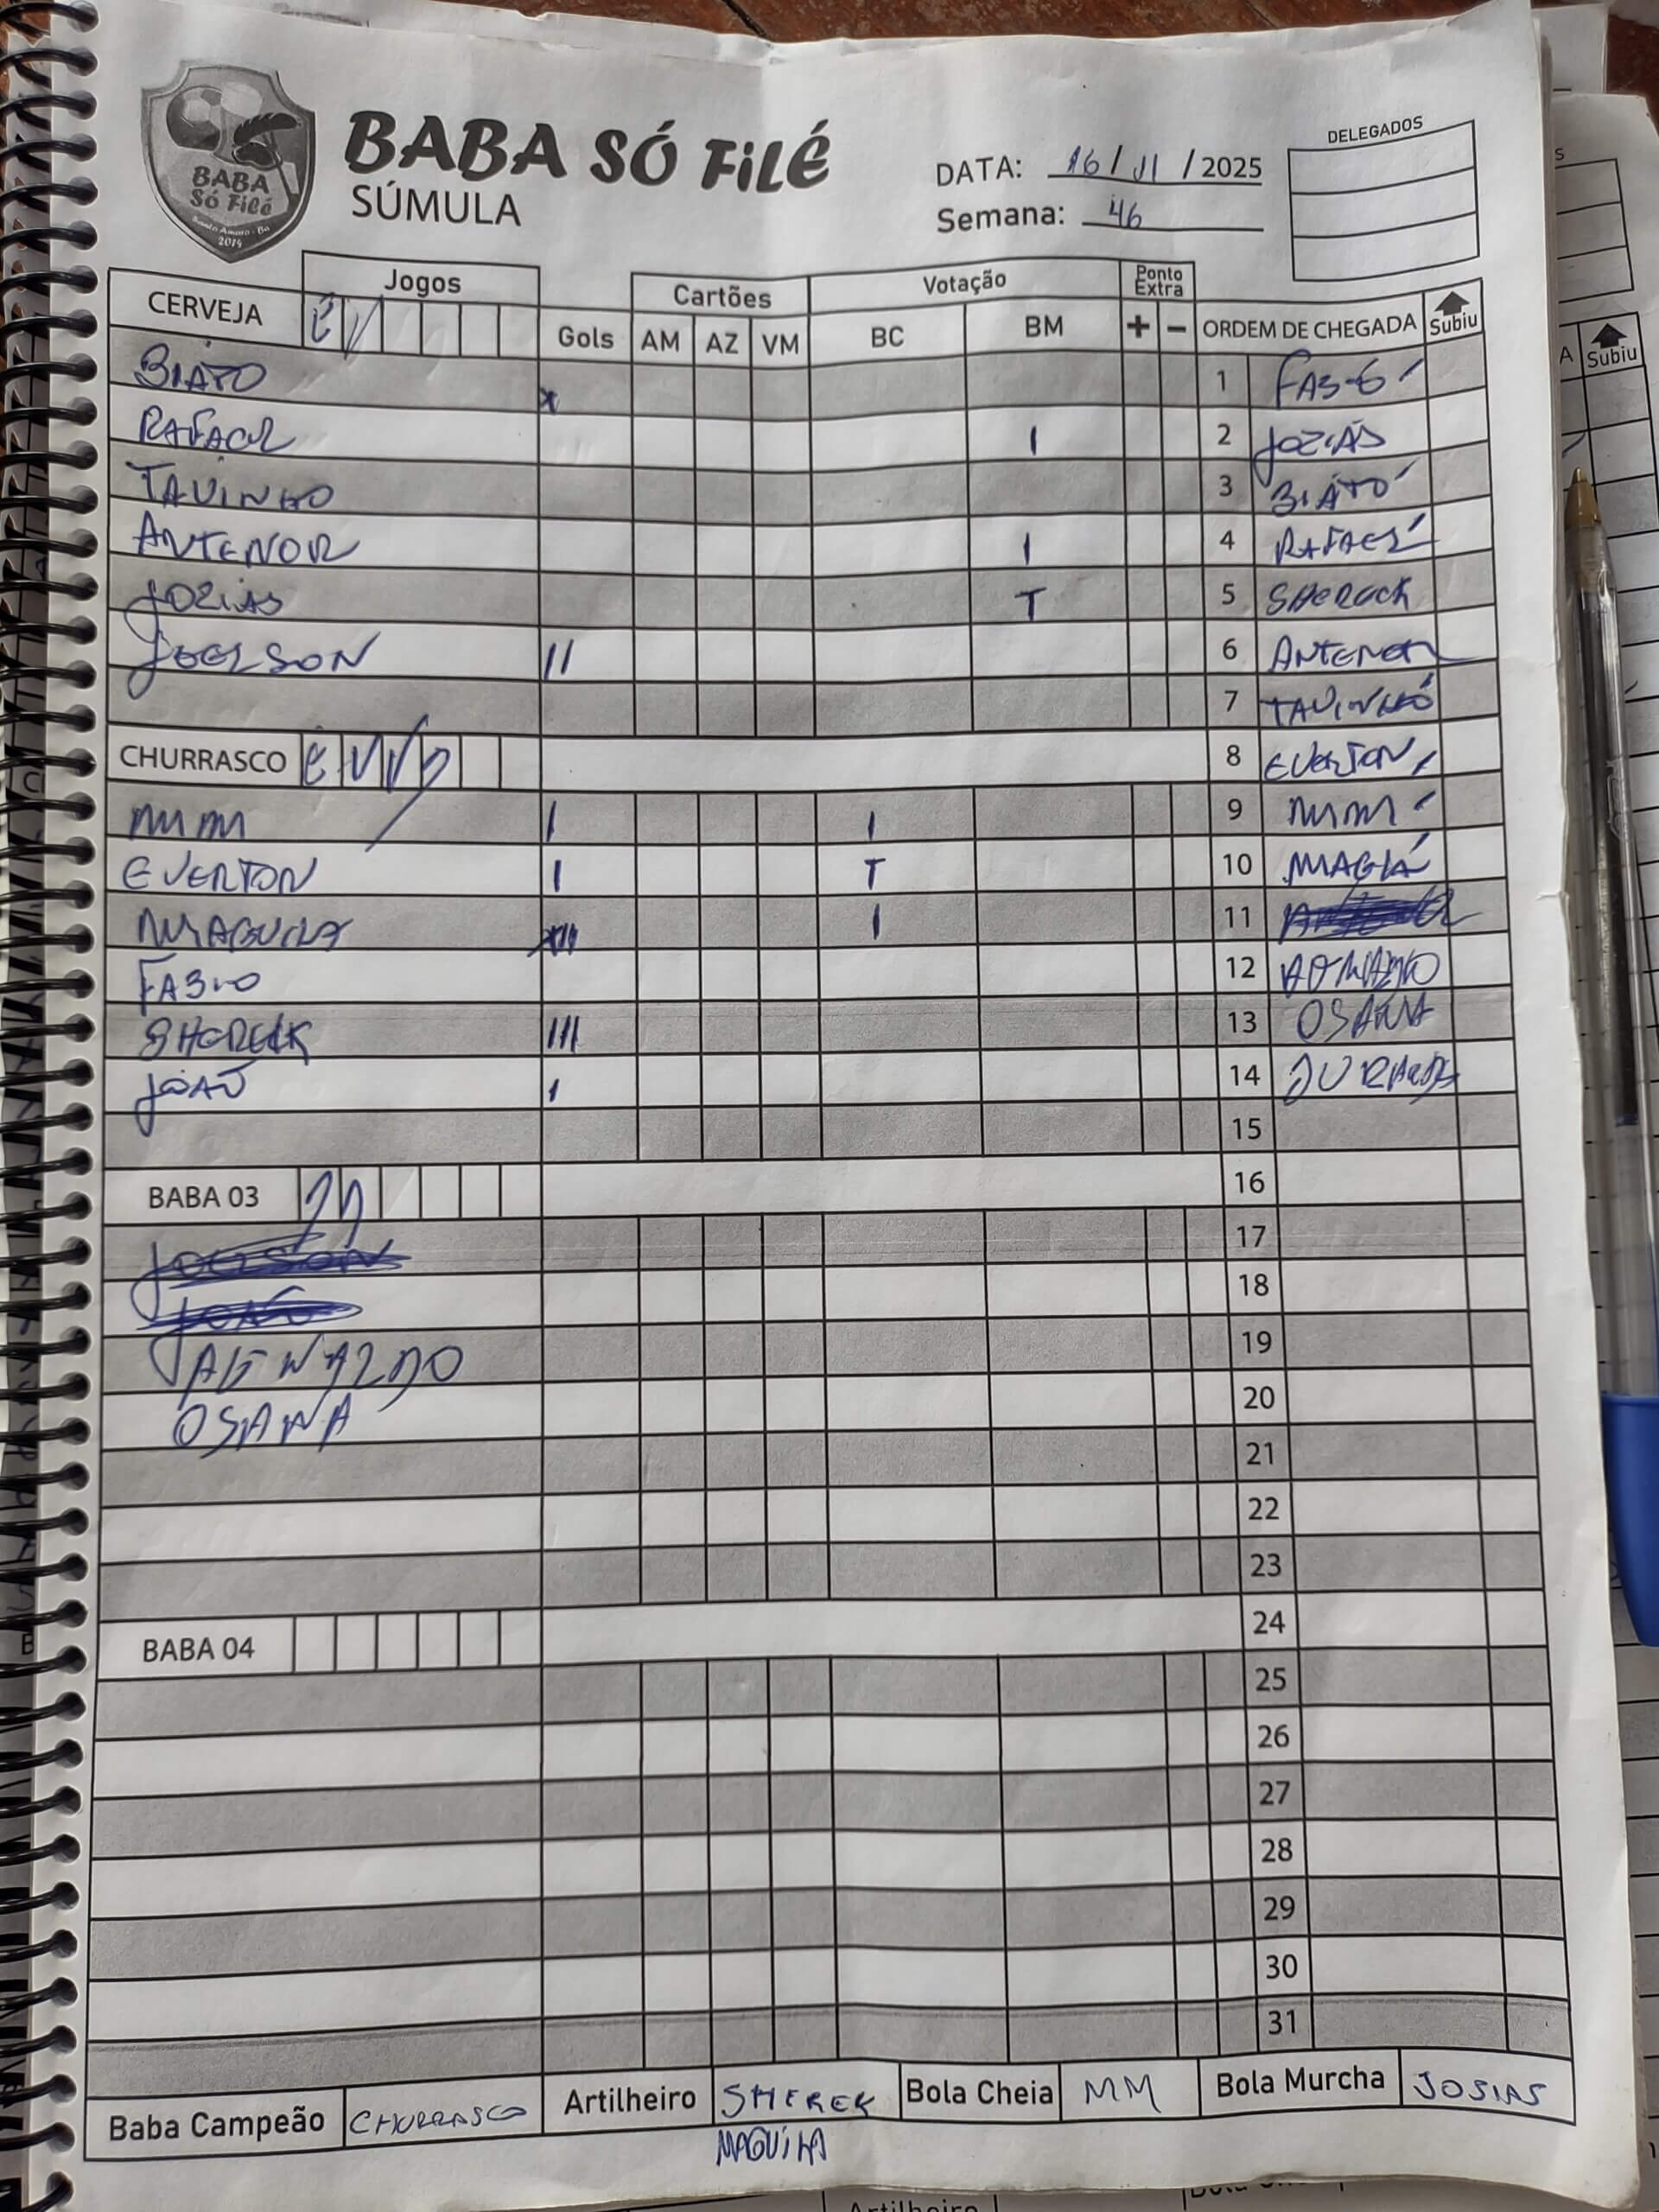 BABA SÓ FiLÉ
SÚMULA
BABA
Só Filé
Santo Amaro - Ba
2014
DATA: 16 / 11 / 2025
Semana: 46
DELEGADOS
Jogos
Cartões
Votação
Ponto Extra
CERVEJA E V
Gols AM AZ VM BC BM + - ORDEM DE CHEGADA Subiu
BIATO x 1 FABIO
RAFAEL I 2 JOZIAS
TAVINHO 3 BIATO
ANTENOR I 4 RAFAEL
JOZIAS T 5 SHERECK
JOELSON II 6 ANTENOR
7 TAVINHO
CHURRASCO E V V 8 EVERTON
MM I I 9 MM
EVERTON I T 10 MAGUA
MAGUILA III I 11
FABIO 12
SHERECK III 13 OSANA
JOÃO I 14
15
BABA 03 16
JOELSON 17
JOÃO 18
19
OSANA 20
21
22
23
BABA 04 24
25
26
27
28
29
30
31
Baba Campeão CHURRASCO Artilheiro SHEREK Bola Cheia MM Bola Murcha JOSIAS
MAGUILA
A Subiu
Artilheiro